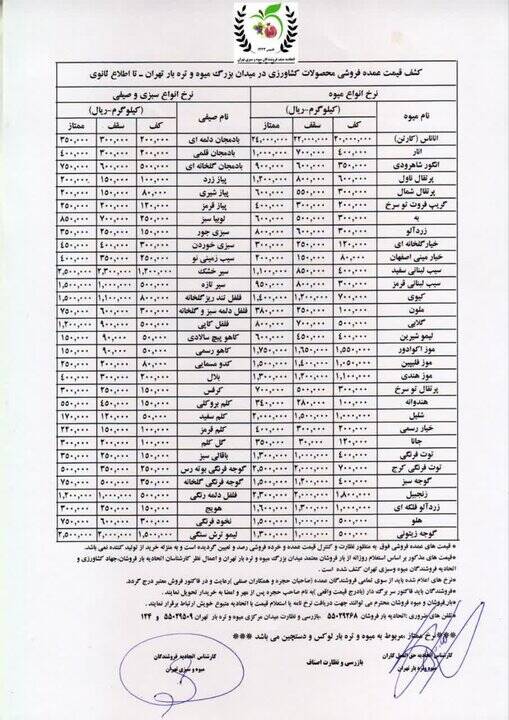 کشف قیمت عمده فروشی محصولات کشاورزی در میدان بزرگ میوه و تره بار تهران ـ تا اطلاع ثانوی
نرخ انواع میوه نرخ انواع سبزی و صیفی
(کیلوگرم-ریال) (کیلوگرم-ریال)
نام میوه کف سقف ممتاز نام صیفی کف سقف ممتاز
آناناس (کارتن) ۲۰,۰۰۰,۰۰۰ ۲۲,۰۰۰,۰۰۰ ۲۴,۰۰۰,۰۰۰ بادمجان دلمه ای ۲۰۰,۰۰۰ ۳۰۰,۰۰۰ ۳۵۰,۰۰۰
انار ۴۰۰,۰۰۰ ۷۰۰,۰۰۰ ۱,۰۰۰,۰۰۰ بادمجان قلمی ۲۰۰,۰۰۰ ۳۰۰,۰۰۰ ۴۰۰,۰۰۰
انگور شاهرودی ۳۵۰,۰۰۰ ۶۰۰,۰۰۰ ۹۰۰,۰۰۰ بادمجان گلخانه ای ۵۰۰,۰۰۰ ۶۰۰,۰۰۰ ۷۵۰,۰۰۰
پرتقال ناول ۶۰۰,۰۰۰ ۸۰۰,۰۰۰ ۱,۲۰۰,۰۰۰ پیاز زرد ۱۰۰,۰۰۰ ۱۵۰,۰۰۰ ۲۰۰,۰۰۰
پرتقال شمال ۳۰۰,۰۰۰ ۵۵۰,۰۰۰ ۶۰۰,۰۰۰ پیاز شیری ۸۰,۰۰۰ ۱۵۰,۰۰۰ ۲۰۰,۰۰۰
گریپ فروت تو سرخ ۲۰۰,۰۰۰ ۳۰۰,۰۰۰ ۴۰۰,۰۰۰ پیاز قرمز ۱۲۰,۰۰۰ ۲۰۰,۰۰۰ ۳۵۰,۰۰۰
به ۳۰۰,۰۰۰ ۵۰۰,۰۰۰ ۶۰۰,۰۰۰ لوبیا سبز ۳۵۰,۰۰۰ ۷۰۰,۰۰۰ ۸۵۰,۰۰۰
زردآلو ۳۰۰,۰۰۰ ۶۰۰,۰۰۰ ۸۰۰,۰۰۰ سبزی جور ۱۵۰,۰۰۰ ۲۵۰,۰۰۰ ۳۵۰,۰۰۰
خیارگلخانه ای ۱۲۰,۰۰۰ ۲۵۰,۰۰۰ ۳۰۰,۰۰۰ سبزی خوردن ۳۰۰,۰۰۰ ۴۰۰,۰۰۰ ۴۵۰,۰۰۰
خیار مینی اصفهان ۸۰,۰۰۰ ۱۵۰,۰۰۰ ۲۰۰,۰۰۰ سیب زمینی نو ۲۵۰,۰۰۰ ۳۵۰,۰۰۰ ۴۰۰,۰۰۰
سیب لبنانی سفید ۴۰۰,۰۰۰ ۸۵۰,۰۰۰ ۱,۱۰۰,۰۰۰ سیر خشک ۱,۲۰۰,۰۰۰ ۲,۳۰۰,۰۰۰ ۲,۵۰۰,۰۰۰
سیب لبنانی قرمز ۳۰۰,۰۰۰ ۸۰۰,۰۰۰ ۹۵۰,۰۰۰ سیر تازه ۵۰۰,۰۰۰ ۱,۰۰۰,۰۰۰ ۱,۵۰۰,۰۰۰
کیوی ۷۰۰,۰۰۰ ۱,۲۰۰,۰۰۰ ۱,۴۰۰,۰۰۰ فلفل تند ریزگلخانه ۸۰۰,۰۰۰ ۱,۱۰۰,۰۰۰ ۱,۵۰۰,۰۰۰
ملون ۱۰۰,۰۰۰ ۲۵۰,۰۰۰ ۳۸۰,۰۰۰ فلفل دلمه سبز و گلخانه ۳۰۰,۰۰۰ ۶۰۰,۰۰۰ ۷۵۰,۰۰۰
گلابی ۵۰۰,۰۰۰ ۷۰۰,۰۰۰ ۸۰۰,۰۰۰ فلفل کاپی ۵۰۰,۰۰۰ ۹۰۰,۰۰۰ ۱,۲۰۰,۰۰۰
لیمو شیرین ۴۰۰,۰۰۰ ۴۵۰,۰۰۰ ۶۰۰,۰۰۰ کاهو پیچ سالادی ۵۰,۰۰۰ ۹۰,۰۰۰ ۱۵۰,۰۰۰
موز اکوادور ۱,۵۵۰,۰۰۰ ۱,۶۵۰,۰۰۰ ۱,۷۵۰,۰۰۰ کاهو رسمی ۵۰,۰۰۰ ۹۰,۰۰۰ ۱۵۰,۰۰۰
موز فلیپین ۱,۰۵۰,۰۰۰ ۱,۴۰۰,۰۰۰ ۱,۵۰۰,۰۰۰ کدو مسمایی ۸۰,۰۰۰ ۲۰۰,۰۰۰ ۲۵۰,۰۰۰
موز هندی ۱,۱۰۰,۰۰۰ ۱,۲۰۰,۰۰۰ ۱,۳۰۰,۰۰۰ بلال ۲۰۰,۰۰۰ ۳۰۰,۰۰۰ ۴۰۰,۰۰۰
پرتقال تو سرخ ۳۰۰,۰۰۰ ۵۰۰,۰۰۰ ۷۰۰,۰۰۰ کرفس ۱۵۰,۰۰۰ ۲۵۰,۰۰۰ ۳۰۰,۰۰۰
هندوانه ۱۰۰,۰۰۰ ۲۸۰,۰۰۰ ۳۴۰,۰۰۰ کلم بروکلی ۱۵۰,۰۰۰ ۴۵۰,۰۰۰ ۵۵۰,۰۰۰
شلیل ۱,۰۰۰,۰۰۰ ۱,۵۰۰,۰۰۰ ۲,۰۰۰,۰۰۰ کلم سفید ۵۰,۰۰۰ ۱۲۰,۰۰۰ ۱۷۰,۰۰۰
خیار رسمی ۲۰۰,۰۰۰ ۳۰۰,۰۰۰ ۴۰۰,۰۰۰ کلم قرمز ۱۰۰,۰۰۰ ۱۵۰,۰۰۰ ۲۰۰,۰۰۰
جانا ۱۲۰,۰۰۰ ۳۰,۰۰۰ ۳۵۰,۰۰۰ گل کلم ۱۰۰,۰۰۰ ۲۰۰,۰۰۰ ۳۰۰,۰۰۰
توت فرنگی ۴۰۰,۰۰۰ ۱,۰۰۰,۰۰۰ ۱,۳۰۰,۰۰۰ باقالی سبز ۱۵۰,۰۰۰ ۲۵۰,۰۰۰ ۳۵۰,۰۰۰
توت فرنگی کرج ۷۰۰,۰۰۰ ۲,۰۰۰,۰۰۰ ۲,۵۰۰,۰۰۰ گوجه فرنگی بوته رس ۲۵۰,۰۰۰ ۳۵۰,۰۰۰ ۵۰۰,۰۰۰
گوجه سبز ۴۰۰,۰۰۰ ۱,۲۰۰,۰۰۰ ۱,۵۰۰,۰۰۰ گوجه فرنگی گلخانه ۳۵۰,۰۰۰ ۵۰۰,۰۰۰ ۷۵۰,۰۰۰
زنجبیل ۱,۸۰۰,۰۰۰ ۲,۰۰۰,۰۰۰ ۲,۳۰۰,۰۰۰ فلفل دلمه رنگی ۵۰۰,۰۰۰ ۱,۰۰۰,۰۰۰ ۱,۲۰۰,۰۰۰
زردآلو فلکه ای ۱,۰۰۰,۰۰۰ ۱,۳۰۰,۰۰۰ ۱,۶۰۰,۰۰۰ هویج ۱۵۰,۰۰۰ ۲۵۰,۰۰۰ ۳۰۰,۰۰۰
هلو ۵۰۰,۰۰۰ ۱,۰۰۰,۰۰۰ ۱,۵۰۰,۰۰۰ نخود فرنگی ۳۰۰,۰۰۰ ۶۰۰,۰۰۰ ۷۵۰,۰۰۰
گوجه زیتونی ۵۰۰,۰۰۰ ۱,۰۰۰,۰۰۰ ۱,۳۰۰,۰۰۰ لیمو ترش سنگی ۱,۵۰۰,۰۰۰ ۲,۰۰۰,۰۰۰ ۲,۵۰۰,۰۰۰
*قیمت های عمده فروشی فوق به منظور نظارت و کنترل قیمت عمده و خرده فروشی رصد و تعیین گردیده است و به منزله خرید از تولید کننده نمی باشد.
*قیمت های مذکور بر اساس استعلام روزانه از بار فروشان معتمد میدان بزرگ میوه و تره بار تهران و اعمال نظر کارشناسان اتحادیه بارفروشان،جهاد کشاورزی و اتحادیه فروشندگان میوه وسبزی تهران کشف شده است .
*نرخ های اعلام شده باید از سوی تمامی فروشندگان عمده (صاحبان حجره و همکاران صنفی )رعایت و در فاکتور فروش معتبر درج گردد.
*فروشندگان باید فاکتور سربرگ دار (بادرج قیمت واقعی )به نام صاحب حجره پس از مهر و امضا به خریدار تحویل نمایند .
*بارفروشان و میوه فروشان محترم می توانند جهت دریافت نرخ نامه یا استعلام قیمت با اتحادیه متبوع خویش ارتباط برقرار نمایند .
*تلفن های ضروری :اتحادیه بار فروشان ۵۵۰۲۹۲۶۸ -بازرسی و نظارت میدان مرکزی میوه و تره بار تهران ۵۵۰۲۹۵۰۹ و ۱۲۴
***نرخ ممتاز ،مربوط به میوه و تره بار لوکس و دستچین می باشد ***
کارشناس اتحادیه حق العمل کاران بازرسی و نظارت اصناف کارشناس اتحادیه فروشندگان
میوه و تره بار تهران میوه و سبزی تهران